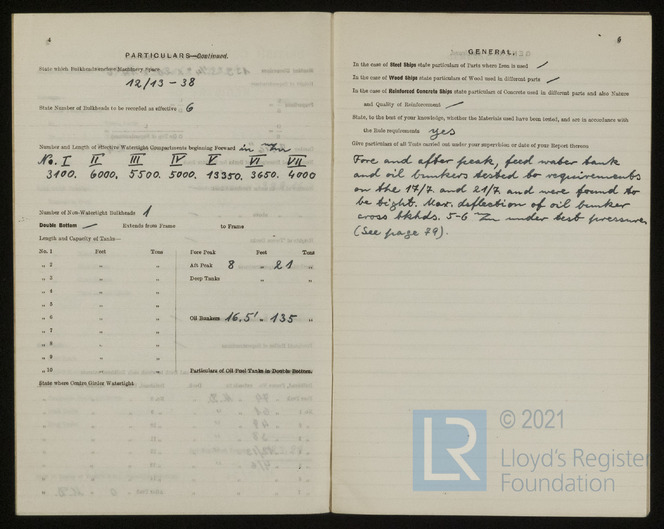 4
PARTICULARS—Continued.
State which Bulkheads enclose Machinery Space
12/13 - 38
State Number of Bulkheads to be recorded as effective 6
Number and Length of effective Watertight Compartments beginning Forward in
No. I II III IV V VI VII
3100. 6000. 5500. 5000. 13350. 3650. 4000
Number of Non-Watertight Bulkheads 1
Double Bottom — Extends from Frame to Frame
Length and Capacity of Tanks—
No. 1 Feet Tons Fore Peak Feet Tons
„ 2 „ „ Aft Peak 8 „ 21 „
„ 3 „ „ Deep Tanks „ „
„ 4 „ „
„ 5 „ „
„ 6 „ „ Oil Bunkers 16.5' „ 135 „
„ 7 „ „
„ 8 „ „
„ 9 „ „
„ 10 „ „ Particulars of Oil Fuel Tanks in Double Bottom.
State where Centre Girder Watertight
5
GENERAL.
In the case of Steel Ships state particulars of Parts where Iron is used
In the case of Wood Ships state particulars of Wood used in different parts
In the case of Reinforced Concrete Ships state particulars of Concrete used in different parts and also Nature
and Quality of Reinforcement
State, to the best of your knowledge, whether the Materials used have been tested, and are in accordance with
the Rule requirements yes
Give particulars of all Tests carried out under your supervision or date of your Report thereon
Fore and after peak, feed water tank
and oil bunkers tested to requirements
on the 17/7 and 21/7 and were found to
be tight. Max. deflection of oil bunker
cross bkhds. 5-6 under test pressure,
(See page 79).
LR © 2021
Lloyd's Register
Foundation